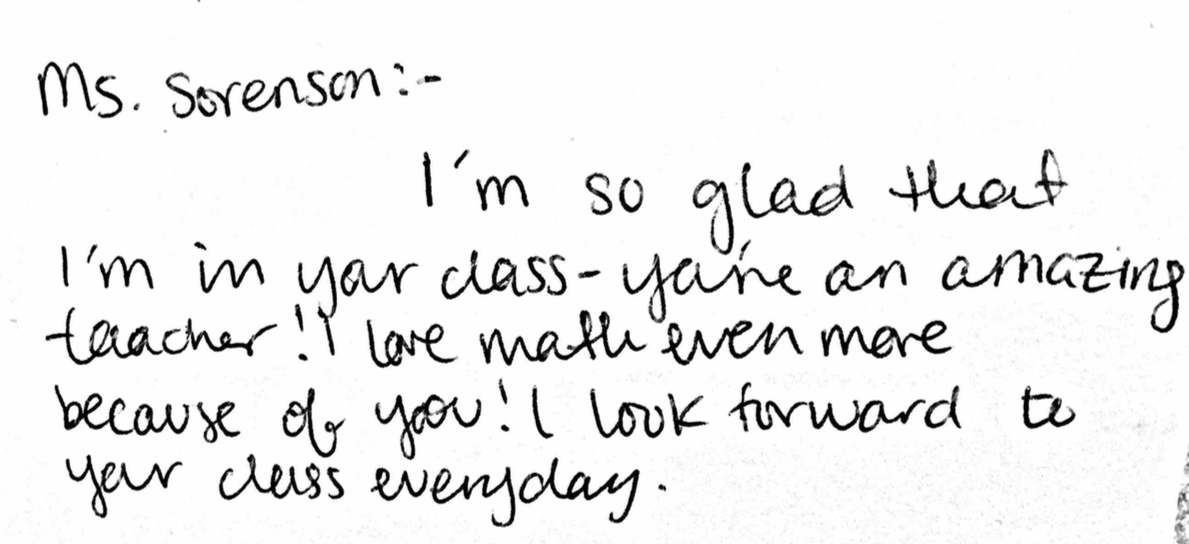 Ms. Sorenson:-
I'm so glad that
I'm in your class - you're an amazing
teacher! I love math even more
because of you! I look forward to
your class everyday.